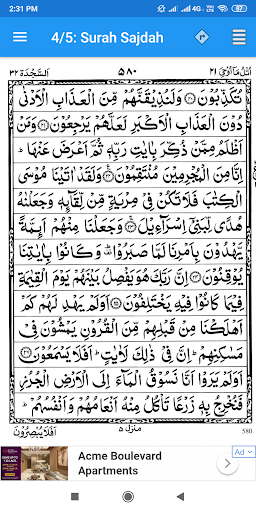 2:31 PM
4G
4/5: Surah Sajdah
السجدة ٣٢
٥٨٠
اتل ما اوحی ٢١
تُكَذِّبُوْنَ ﴿٢٠﴾ وَلَنُذِيْقَنَّهُمْ مِّنَ الْعَذَابِ الْاَدْنٰى
دُوْنَ الْعَذَابِ الْاَكْبَرِ لَعَلَّهُمْ يَرْجِعُوْنَ ﴿٢١﴾ وَمَنْ
اَظْلَمُ مِمَّنْ ذُكِّرَ بِاٰيٰتِ رَبِّهٖ ثُمَّ اَعْرَضَ عَنْهَا ؕ
اِنَّا مِنَ الْمُجْرِمِيْنَ مُنْتَقِمُوْنَ ﴿٢٢﴾ وَلَقَدْ اٰتَيْنَا مُوْسَى
الْكِتٰبَ فَلَا تَكُنْ فِيْ مِرْيَةٍ مِّنْ لِّقَآئِهٖ وَجَعَلْنٰهُ
هُدًى لِّبَنِيْٓ اِسْرَآءِيْلَ ﴿٢٣﴾ وَجَعَلْنَا مِنْهُمْ اَئِمَّةً
يَّهْدُوْنَ بِاَمْرِنَا لَمَّا صَبَرُوْا ؕ وَكَانُوْا بِاٰيٰتِنَا
يُوْقِنُوْنَ ﴿٢٤﴾ اِنَّ رَبَّكَ هُوَ يَفْصِلُ بَيْنَهُمْ يَوْمَ الْقِيٰمَةِ
فِيْمَا كَانُوْا فِيْهِ يَخْتَلِفُوْنَ ﴿٢٥﴾ اَوَلَمْ يَهْدِ لَهُمْ كَمْ
اَهْلَكْنَا مِنْ قَبْلِهِمْ مِّنَ الْقُرُوْنِ يَمْشُوْنَ فِيْ
مَسٰكِنِهِمْ ؕ اِنَّ فِيْ ذٰلِكَ لَاٰيٰتٍ ؕ اَفَلَا يَسْمَعُوْنَ ﴿٢٦﴾
اَوَلَمْ يَرَوْا اَنَّا نَسُوْقُ الْمَآءَ اِلَى الْاَرْضِ الْجُرُزِ
فَنُخْرِجُ بِهٖ زَرْعًا تَاْكُلُ مِنْهُ اَنْعَامُهُمْ وَاَنْفُسُهُمْ ؕ
اَفَلَا يُبْصِرُوْنَ
منزل ٥
580
Acme Boulevard
Apartments
Ad